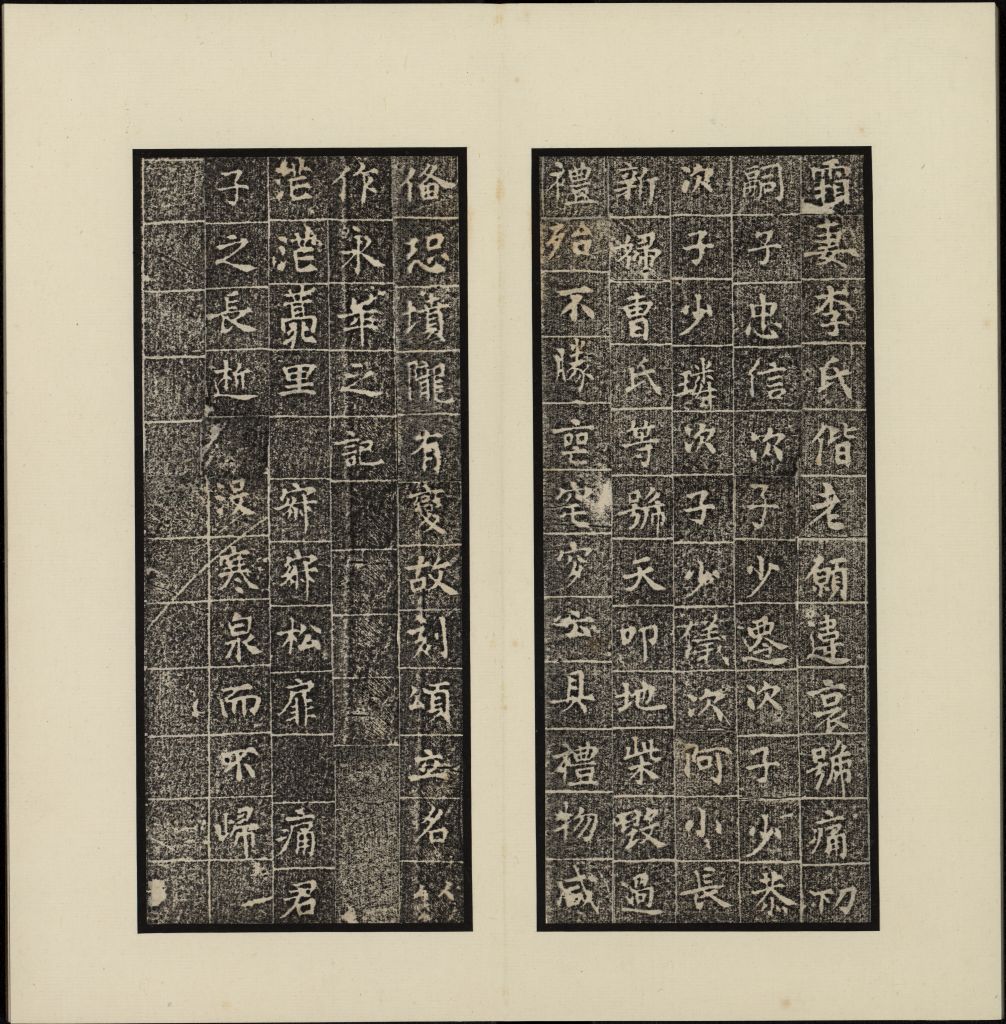 霜妻李氏偕老願違哀號痛切
嗣子忠信次子少遷次子少恭
次子少璘次子少儀次阿小長
新婦曹氏等號天叩地柴毀過
禮殆不勝喪宅穸必具禮物咸
俻恐墳隴有變故刻頌立名以
作永年之記
茫茫蒿里 寂寂松扉 痛君
子之長逝 没寒泉而不歸